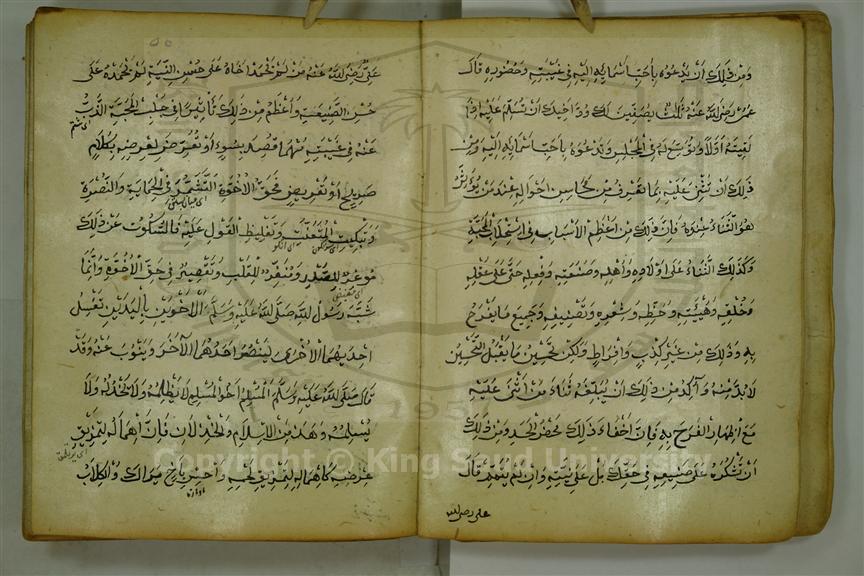 ومن ذلك ان يدعوه باحب اسمايه اليه في غيبته وحضوره قال
عمر رضي الله عنه ثلث يصفين لك ود اخيك ان تسلم عليه اذا
لقيته اولا وتوسع له في المجلس وتدعوه باحب اسمايه اليه ومن
ذلك ان تثني عليه بما تعرف من محاسن احواله عند من يؤثر
هو الثناء عنده فان ذلك من اعظم الاسباب في استجلاب المحبة
وكذلك الثناء على اولاده واهله وصنعته وفعله حتى على عقله
وخلقه وهيئته وخطه وشعره وتصنيفه وجميع ما يفرح
به وذلك من غير كذب وافراط ولكن تحسين ما يقبل التحسين
لا بد منه وآكد من ذلك ان يبلغه ثناء من اثنى عليه
مع اظهار الفرح به فان اخفاء ذلك محض الحسد ومن ذلك
ان تشكره على صنيعه في حقك بل على نيته وان لم يتم قال
على رضي الله
على رضي الله عنه من لم يحمد اخاه على حسن النية لم يحمده على
حسن الصنيعة واعظم من ذلك تأثيرا في جلب المحبة الذب
عنه في غيبته مهما قصد بسوء او تعرض لعرضه بكلام
صريح او تعريض فحق الاخوة التشمر في الحماية والنصرة
وتبكيت المتعنت وتغليظ القول عليه فالسكوت عن ذلك
موغر للصدر ومنفر للقلب وتقصير في حق الاخوة وانما
شبه رسول الله صلى الله عليه وسلم الاخوين باليدين تغسل
احديهما الاخرى لينصر احدهما الآخر وينوب عنه وقد
قال صلى الله عليه وسلم المسلم اخو المسلم لا يظلمه ولا يخذله ولا
يسلمه وهذا من الاسلام والخذلان فان اهماله لتمزيق
عرضه كاهماله لتمزيق لحمه واخسس باخ يراك والكلاب
Copyright © King Saud University
195